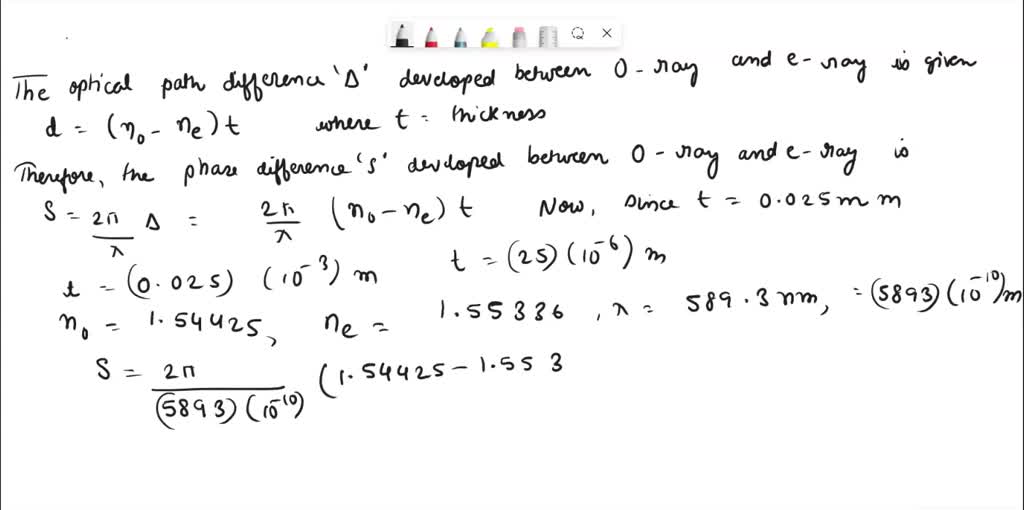 The optical path difference 'Δ' developed between O-ray and e-ray is given
d = (n₀ - nₑ)t where t = thickness
Therefore, the phase difference 's' devdloped between O-ray and e-ray is
S = 2π/λ Δ = 2π/λ (n₀ - nₑ) t Now, since t = 0.025 mm
t = (0.025) (10⁻³) m t = (25)(10⁻⁶) m
n₀ = 1.54425, nₑ = 1.55336, λ = 589.3 nm, = (5893)(10⁻¹⁰)m
S = 2π/(5893)(10⁻¹⁰) (1.54425 - 1.553